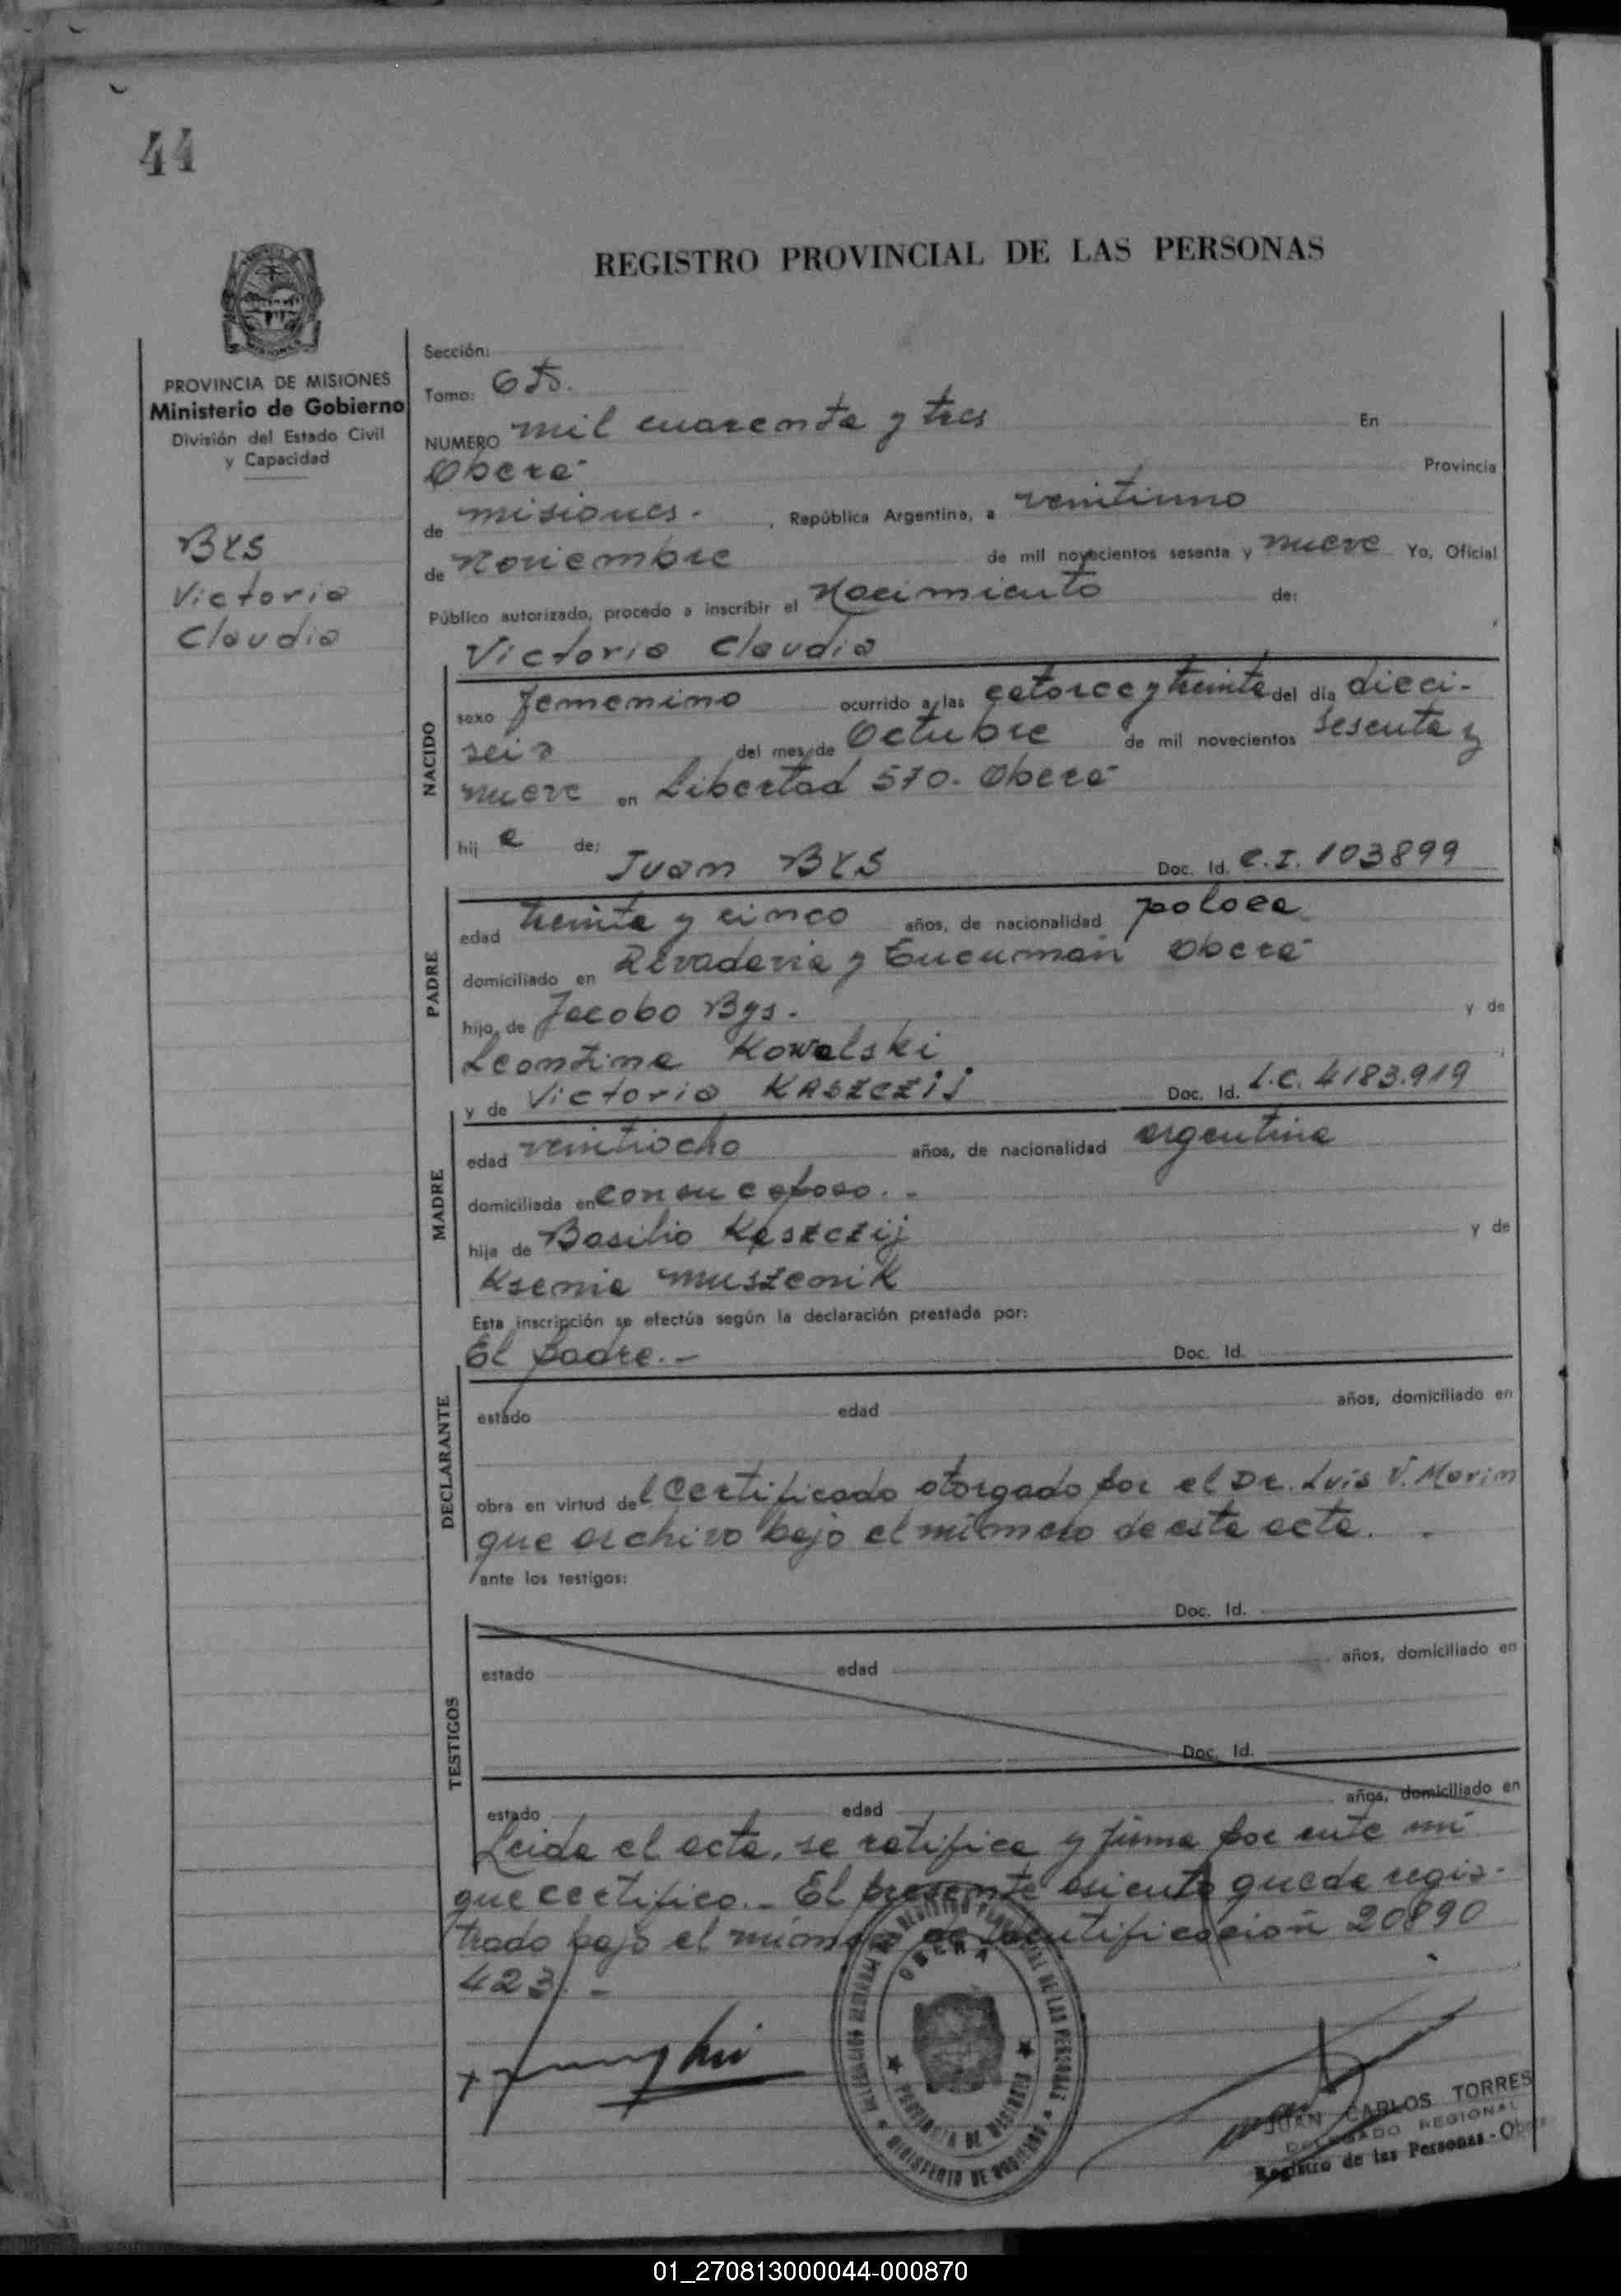 44
REGISTRO PROVINCIAL DE LAS PERSONAS
PROVINCIA DE MISIONES
Ministerio de Gobierno
División del Estado Civil
y Capacidad
BYS
Victoria
Claudia
Sección:
Tomo: 6to.
NUMERO mil cuarenta y tres En
Oberá Provincia
de misiones. , República Argentina, a veintiuno
de Noviembre de mil novecientos sesenta y nueve Yo, Oficial
Público autorizado, procedo a inscribir el Nacimiento de:
Victoria Claudia
NACIDO
sexo femenino ocurrido a las catorce y treinta del día dieci-
seis del mes de Octubre de mil novecientos sesenta y
nueve en Libertad 570. Oberá
hij a de: Juan BYS Doc. Id. C.I. 103899
PADRE
edad treinta y cinco años, de nacionalidad polaca
domiciliado en Rivadavia y Tucumán Oberá
hijo de Jacobo Bys. y de
Leontina Kowalski
y de Victoria KASZCZIJ Doc. Id. L.C. 4183.919
MADRE
edad veintiocho años, de nacionalidad argentina
domiciliada en con su esposo. -
hija de Basilio Kaszczij y de
Ksenia Muszenik
Esta inscripción se efectúa según la declaración prestada por:
El padre. - Doc. Id.
DECLARANTE
estado edad años, domiciliado en
obra en virtud del Certificado otorgado por el Dr. Luis V. Marin
que archivo bajo el número de esta acta.
ante los testigos:
Doc. Id.
TESTIGOS
estado edad años, domiciliado en
Doc. Id.
estado edad años, domiciliado en
Leida el acta, se ratifica y firma por ante mí
que certifico. - El presente asiento queda regis-
trado bajo el número de identificación 20890
423. -
OBERA
PROVINCIA DE MISIONES
MINISTERIO DE GOBIERNO
JUAN CARLOS TORRES
DELEGADO REGIONAL
Registro de las Personas - Oberá
01_270813000044-000870